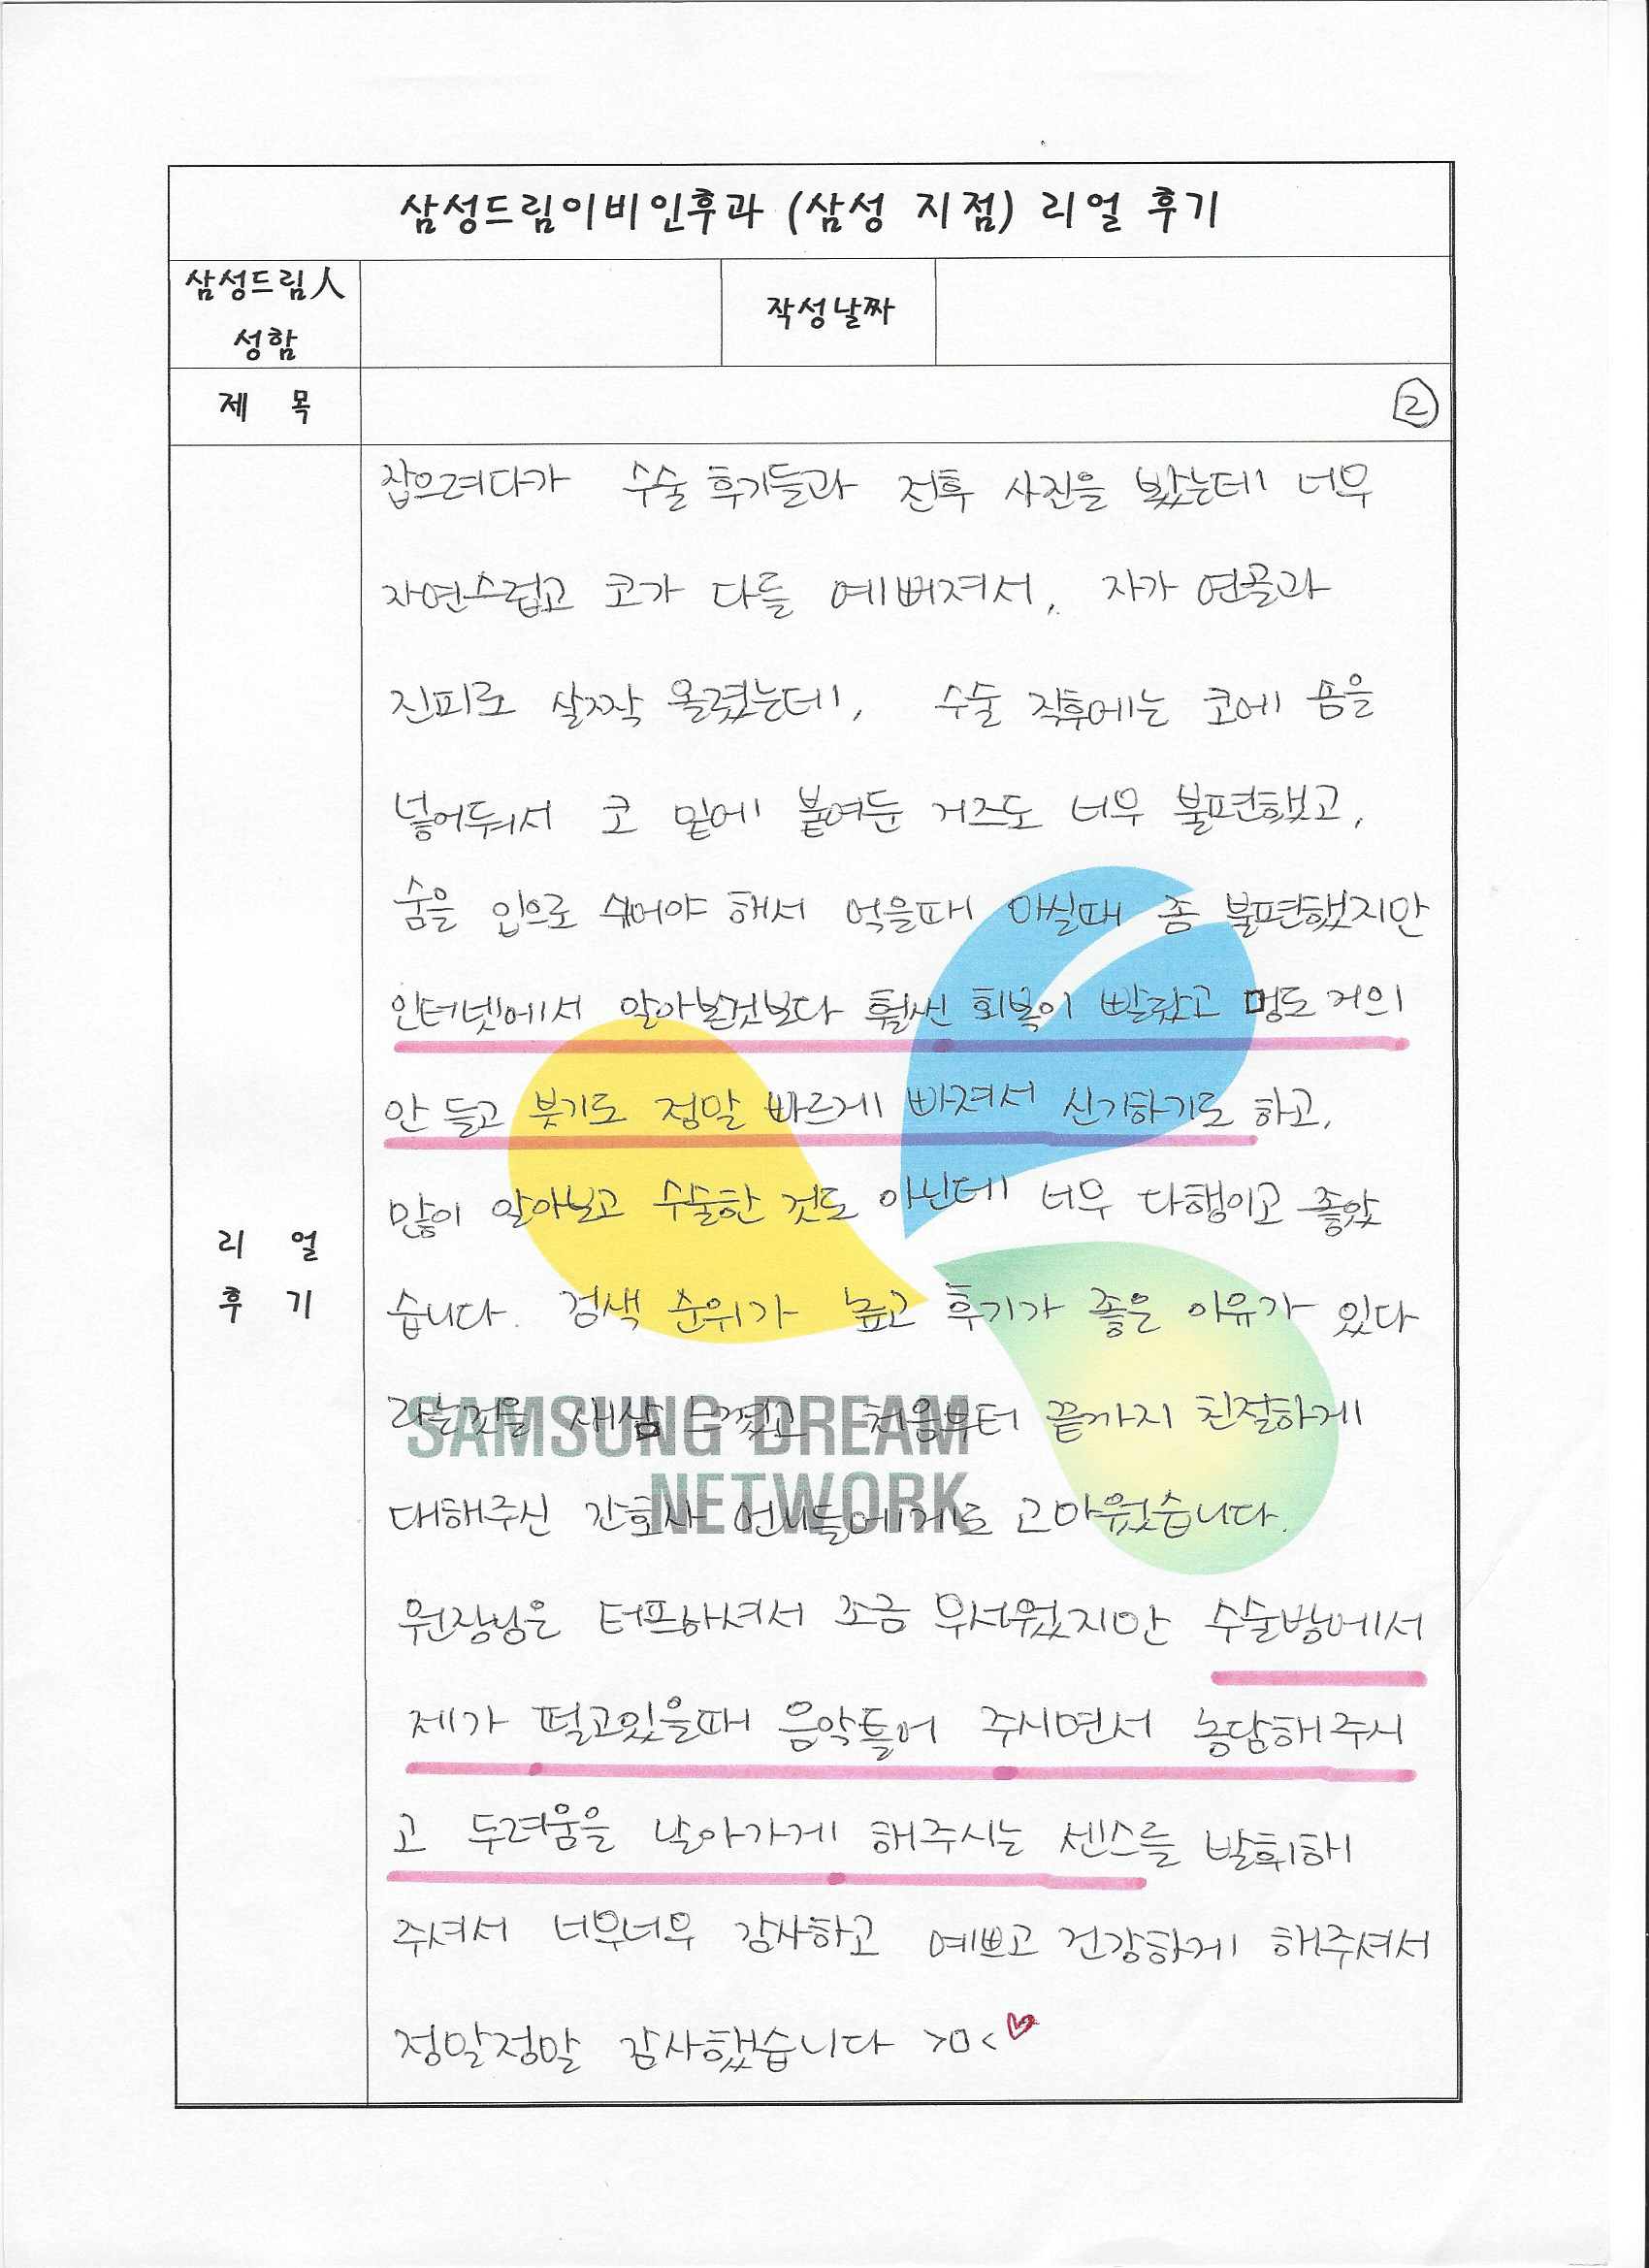 삼성드림이비인후과 (삼성 지점) 리얼 후기
삼성드림人
성함
작성날짜
제 목
②
잡으려다가 수술 후기들과 전후 사진을 봤는데 너무
자연스럽고 코가 다들 예뻐져서, 자가 연골과
진피로 살짝 올렸는데, 수술 직후에는 코에 솜을
넣어둬서 코 밑에 붙여둔 거즈도 너무 불편했고,
숨을 입으로 쉬어야 해서 먹을때 마실때 좀 불편했지만
인터넷에서 알아본것보다 훨씬 회복이 빨랐고 멍도 거의
안 들고 붓기도 정말 빠르게 빠져서 신기하기도 하고,
많이 알아보고 수술한 것도 아닌데 너무 다행이고 좋았
습니다. 검색 순위가 높고 후기가 좋은 이유가 있다
라는것을 새삼 느꼈고 처음부터 끝까지 친절하게
대해주신 간호사 언니들에게도 고마웠습니다.
원장님은 터프하셔서 조금 무서웠지만 수술방에서
제가 떨고있을때 음악틀어 주시면서 농담해주시
고 두려움을 날아가게 해주시는 센스를 발휘해
주셔서 너무너무 감사하고 예쁘고 건강하게 해주셔서
정말정말 감사했습니다 >ㅁ<♡
리 얼
후 기
SAMSUNG DREAM
NETWORK